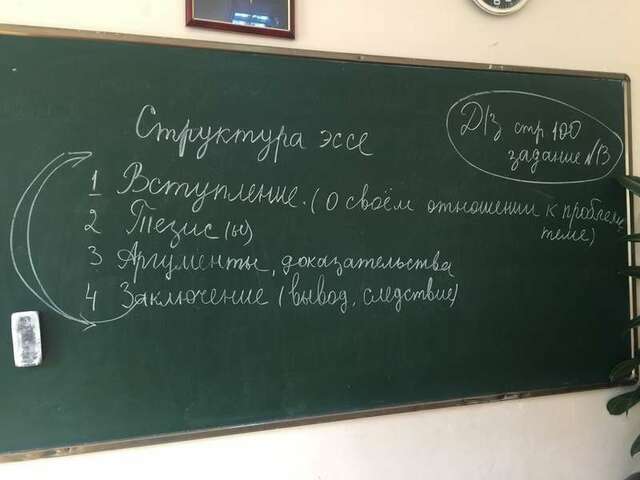 Структура эссе
Д/з стр 100
задание №13
1 Вступление. (О своём отношении к проблеме,
теме)
2 Тезис (ы)
3 Аргументы, доказательства
4 Заключение (вывод, следствие)